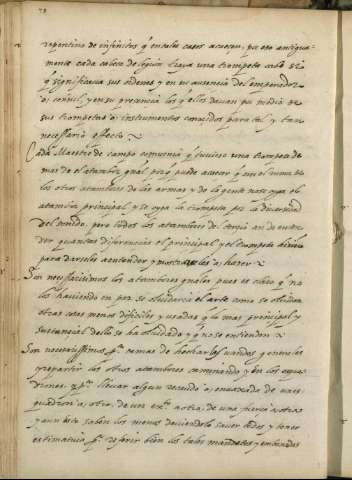 repentino de infinitos q̃ en tales casos acaecen, por esto antigua-
mente cada cabeça de legion traya una trompeta cuyo so
q̃ significava sus ordenes y en su ausencia del emperador
o consul, y en su presencia los q̃ ellos davan por medio de
sus trompetas o instrumentos conocidos para tal y tan
necessario efecto
Cada Maestre de campo convernia q̃ tuviese una trompeta de
mas de el atambor general, porq̃ puede acaecer q̃ con el
los otros atambores de las armas y de la gente no se oyga el
atambor principal y se oyga la trompeta por la diversidad
del sonido, pero todos los atambores del tercio an de enten-
der quantas diferencias el principal y el trompeta
para darselo a entender y mostrarselas a hazer
Son necessarissimos los atambores generales pues es claro q̃ no
los haviendo en paz se olvidaria el arte como se olvidan
otras cosas menos dificiles y usadas q̃ lo mas principal y
sustancial dello se ha olvidado y q̃ no se entienden
Son necessarissimos pa. demas de hechar los vandos y ordenes
y repartir los otros atambores caminando y en los esqua-
drones, y pa. llevar algun recaudo o embaxada de un es-
quadron a otro, de un exto. a otro, de una fuerça a otra
y aun este saben los menos deviendolo saver todos y tener
estimativa pa. referir bien los tales mandatos y embaxadas